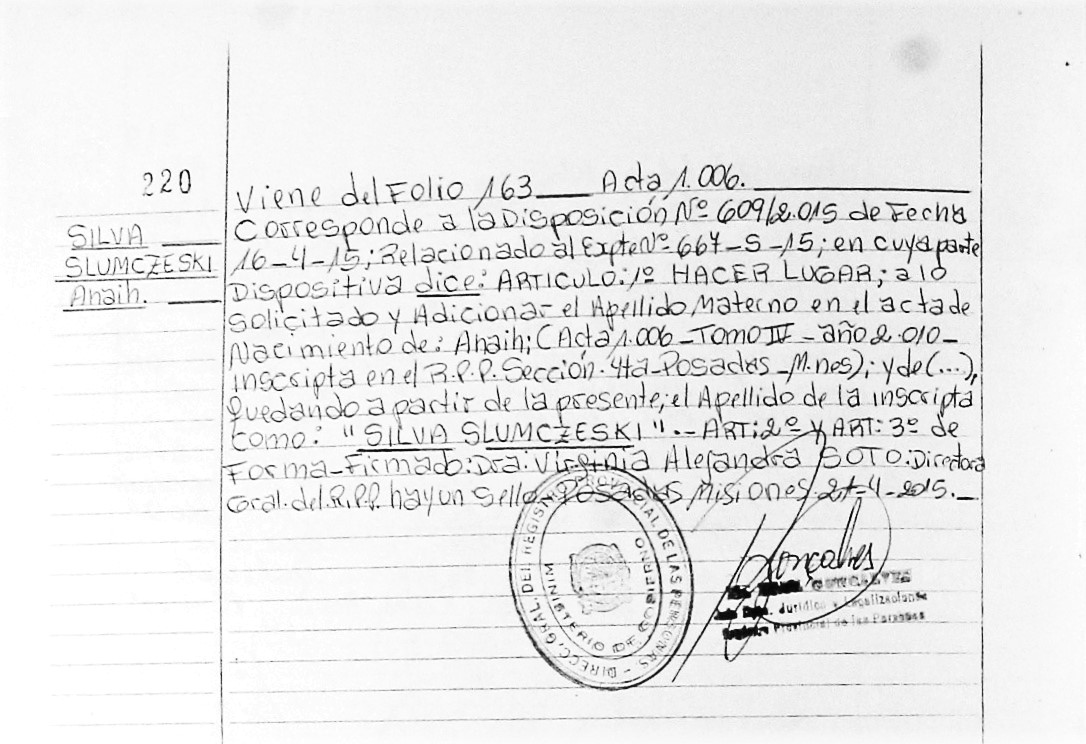 220
SILVA
SLUMCZESKI
Anaih.
Viene del Folio 163___ Acta 1.006.
Corresponde a la Disposición Nº 609/2.015 de Fecha
16-4-15; Relacionado al Expte Nº 667-S-15; en cuya parte
Dispositiva dice: ARTICULO: 1º HACER LUGAR; a lo
Solicitado y Adicionar el Apellido Materno en el acta de
Nacimiento de: Anaih; (Acta 1.006-Tomo IV-año 2.010-
inscripta en el R.P.P. Sección. 4ta-Posadas-M.nes); y de (...),
Quedando a partir de la presente; el Apellido de la inscripta
como: "SILVA SLUMCZESKI".-ART: 2º y ART: 3º de
Forma-Firmado: Dra. Virginia Alejandra SOTO: Directora
Gral. del R.P.P. hay un Sello-Posadas Misiones. 27-4-2015._
DIRECC. GRAL. DEL REGISTRO PROVINCIAL DE LAS PERSONAS -
MINISTERIO DE GOBIERNO
Goncalves
GONCALVES
Jurídico y Legalizaciones
Registro Provincial de las Personas